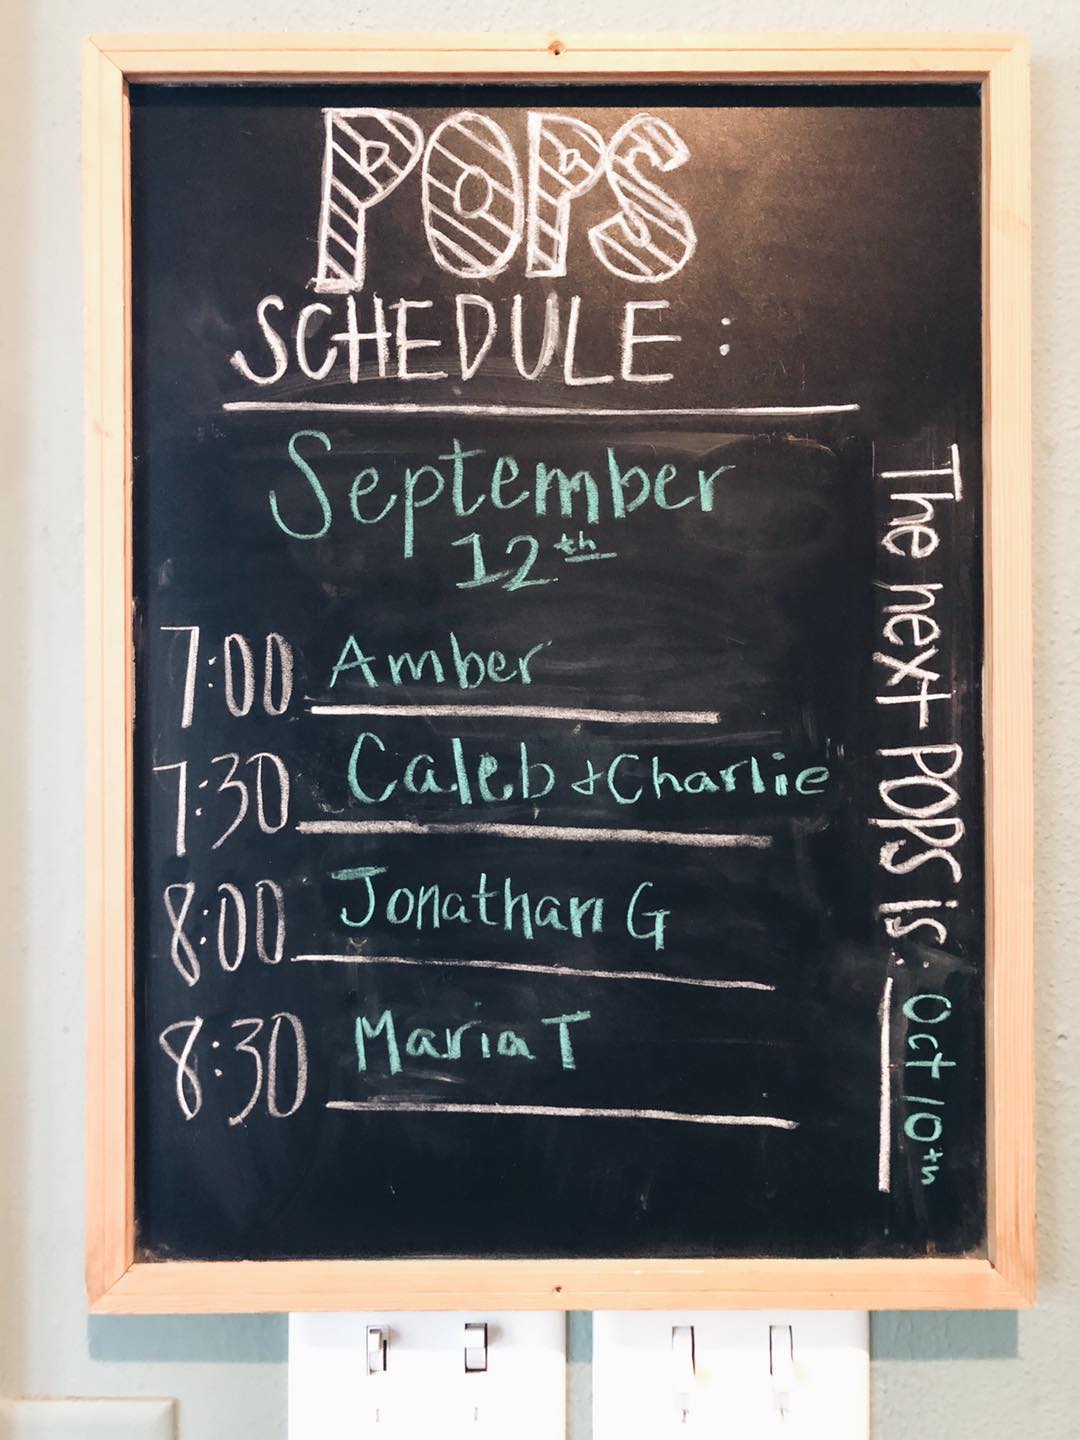 POPS
SCHEDULE:
September
12th
7:00 Amber
7:30 Caleb + Charlie
8:00 Jonathan G
8:30 Maria T
The next POPS is: Oct 10th